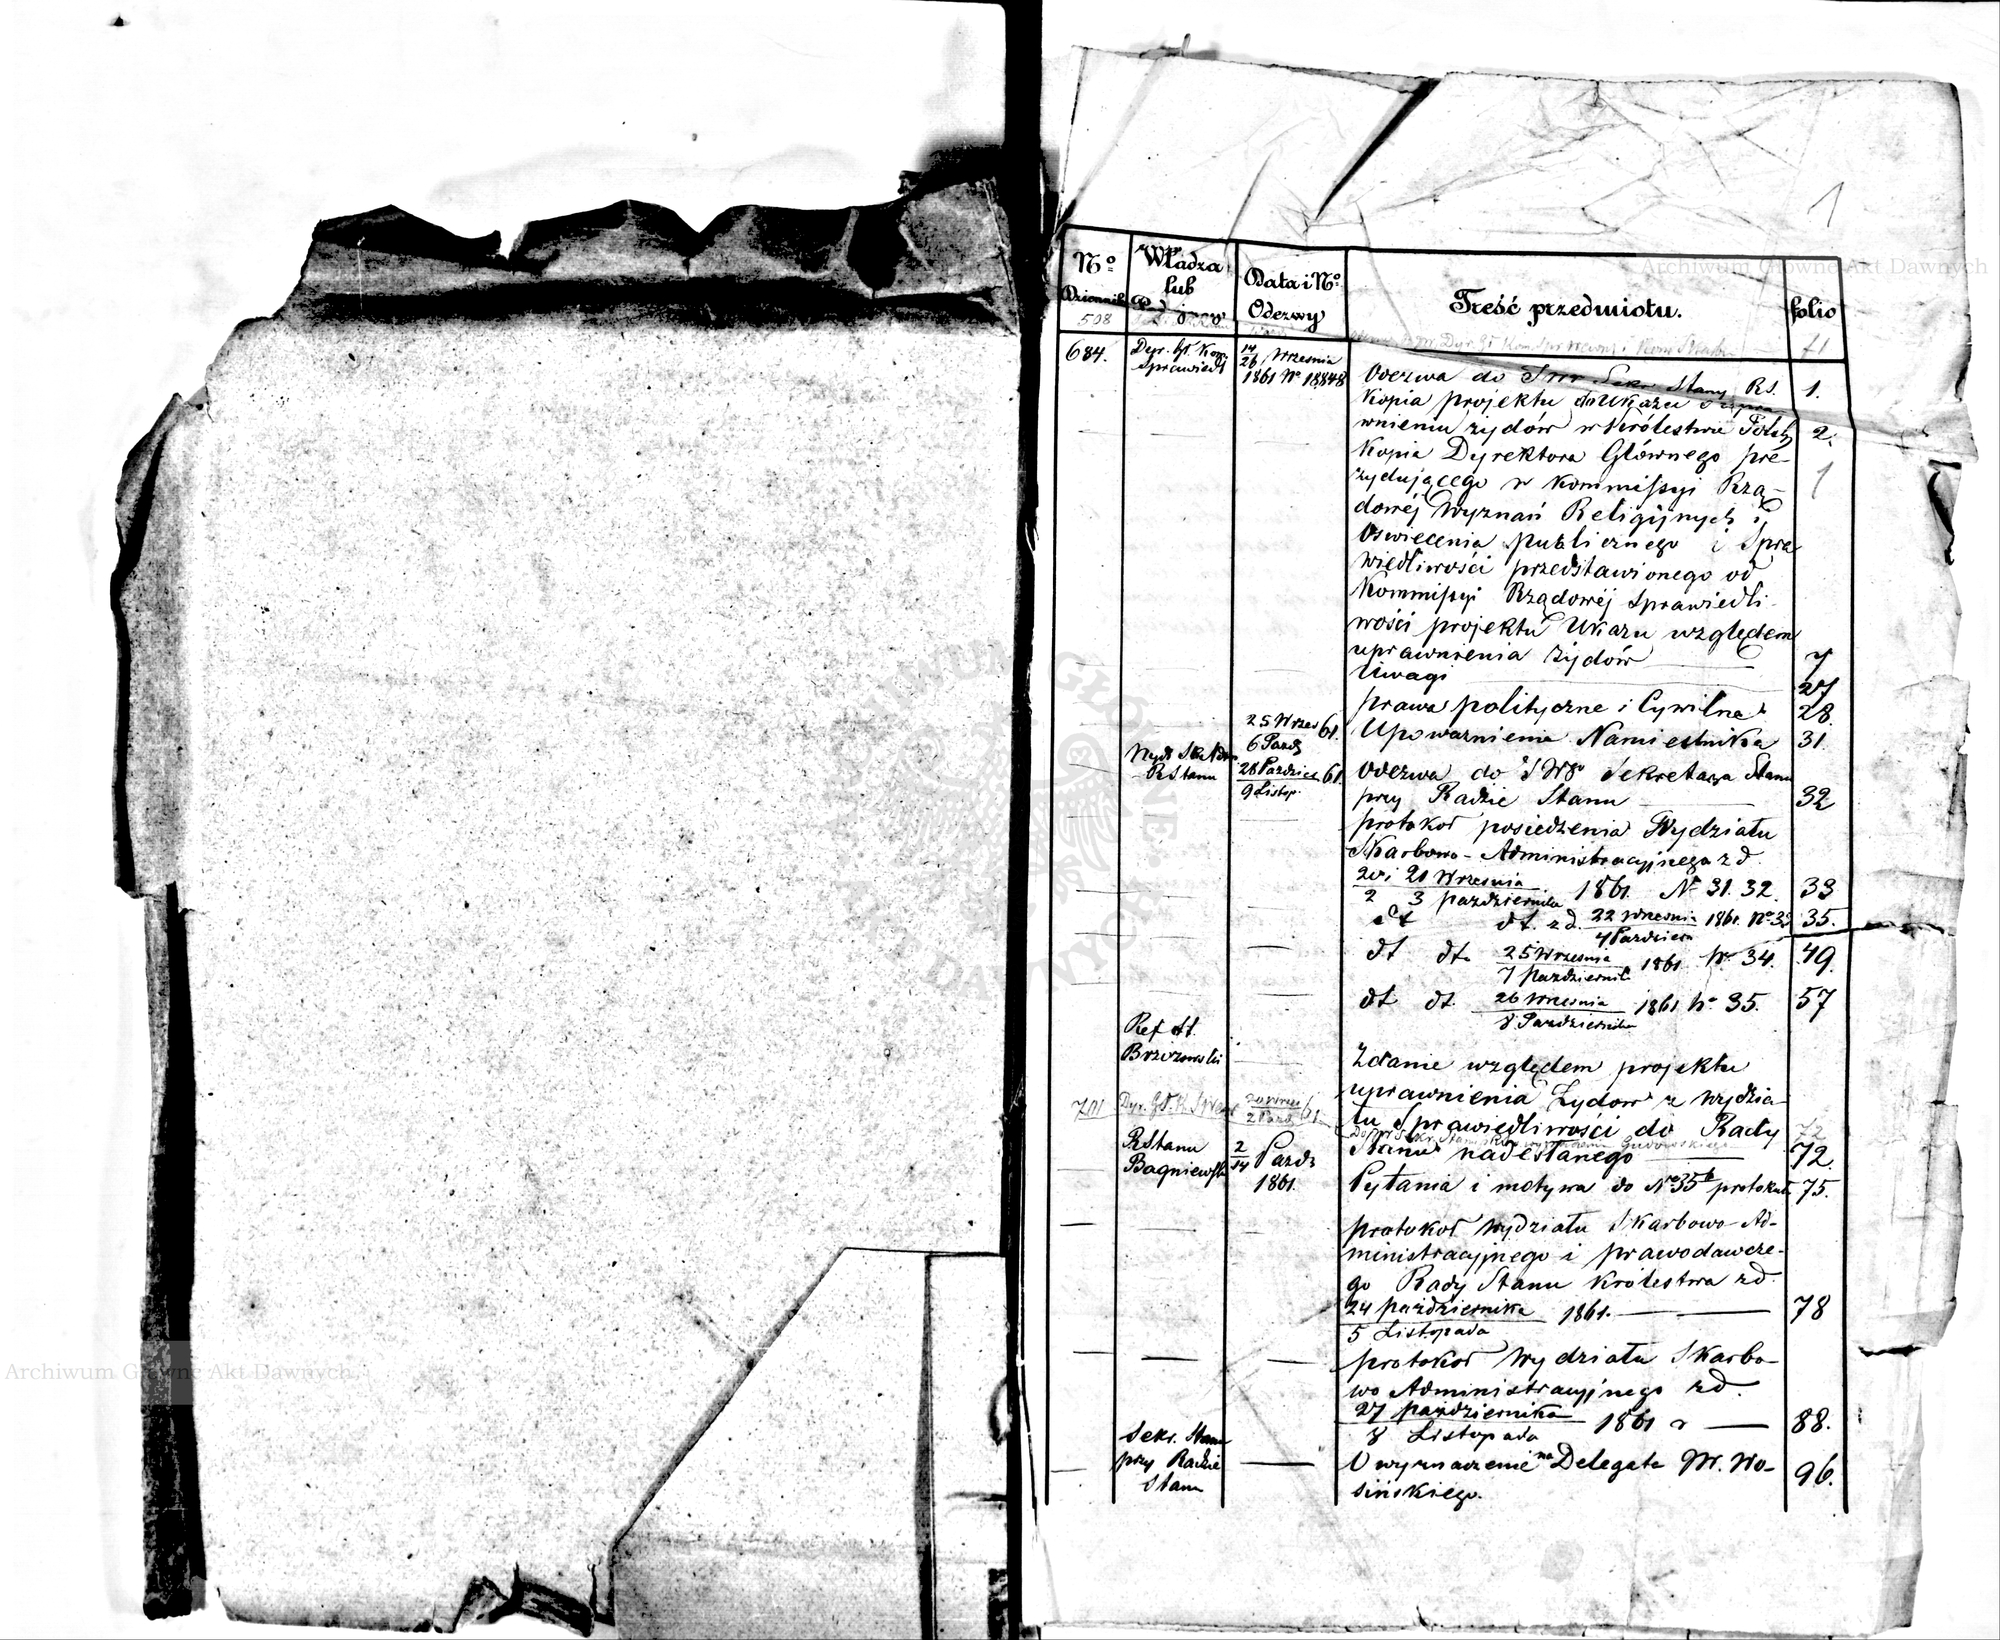 1
Nº Dziennika
Władza lub
Data i Nº Odezwy
Treść przedmiotu.
folio
508
71
684.
Dyr. Gł. Kom. Sprawiedl
14/26 Września 1861 Nº 18848
Odezwa do JWr Sekr Stanu RS.
1.
Kopia projektu do Ukazu o upra
wnieniu żydów w Królestwie Polsk
2.
Kopia Dyrektora Głównego pre-
zydującego w Kommissyi Rzą-
dowéj Wyznań Religijnych i
Oswiecenia publicznego i Spra
wiedliwości przedstawionego od
Kommissyi Rządowéj Sprawiedli-
wości projektu Ukazu względem
uprawnienia żydów
7
Uwagi
27
prawa polityczne i Cywilne
28.
25 Wrzes 61.
6 Pazdz
Upoważnienie Namiestnika
31.
Wydz Sk Adm
RStanu
28 Pazdzier 61.
9 Listop.
Odezwa do JWº Sekretarza Stanu
przy Radzie Stanu
32
protokoł posiedzenia Wydziału
Skarbowo-Administracyjnego z d.
20 i 21 Września
2 3 pazdziernika
1861. Nº 31. 32.
33
dt dt. z d. 22 Wrzesnia 1861. Nº 33
4 Pazdziern
35.
dt dt. 25 Wrzesnia 1861 Nº 34.
7 Pazdziernik
49.
dt dt. 26 Wrzesnia 1861 Nº 35.
8 Pazdziernika
57
Ref st.
Brzozowski
Zdanie względem projektu
uprawnienia Żydów z Wydzia-
łu Sprawiedliwości do Rady
Stanu nadesłanego
72.
701
72
RStanu
Bagniewski
2/14 Pazdz
1861.
Pytania i motywa do Nº 35 protokułu
75.
protokoł Wydziału Skarbowo-Ad-
ministracyjnego i prawodawcze-
go Rady Stanu Królestwa z d.
24 pażdziernika 1861.
5 Listopada
78
protokoł Wydziału Skarbo-
wo Administracyjnego z d.
27 pażdziernika 1861 r
8 Listopada
88.
Sekr. Stanu
przy Radzie
Stanu
O wyznaczenie na Delegata Wo-
sińskiego.
96.
Archiwum Główne Akt Dawnych
Archiwum Główne Akt Dawnych
ARCHIWUM GŁÓWNE AKT DAWNYCH